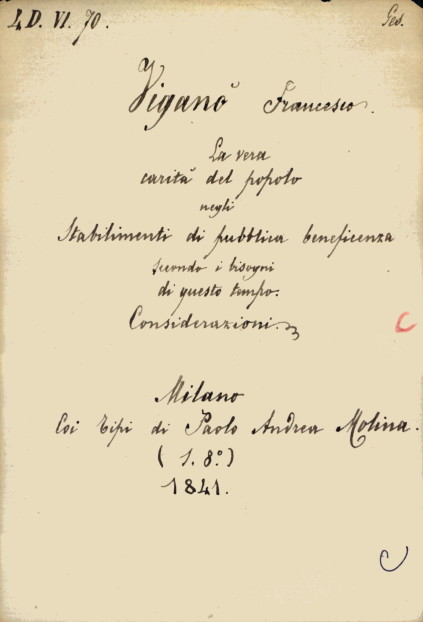 L. D. VI. 70.
Ges.
Viganò Francesco.
La vera
carità del popolo
negli
Stabilimenti di pubblica beneficenza
secondo i bisogni
di questo tempo.
Considerazioni.
Milano
Coi Tipi di Paolo Andrea Molina.
( 1. 8.º )
1841.
C
C